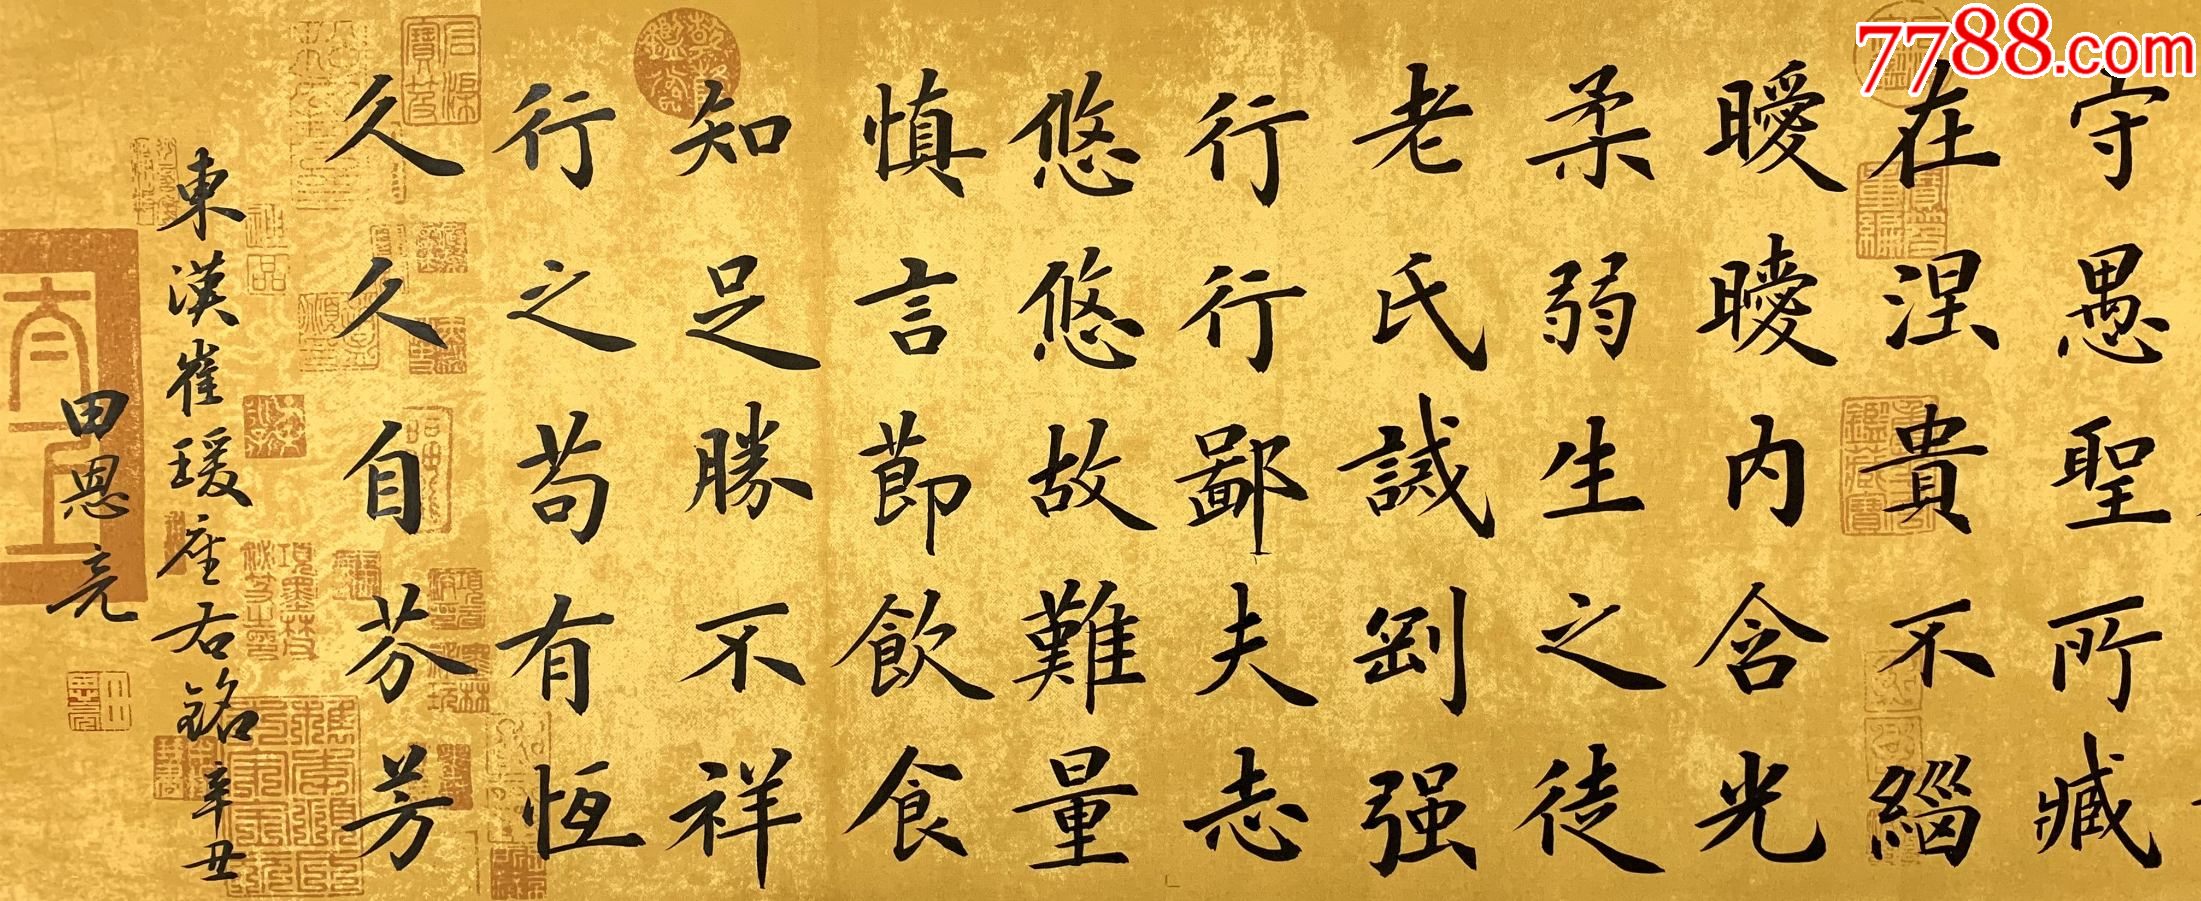 7788.com
守愚聖所臧
在涅貴不緇
曖曖内含光
柔弱生之徒
老氏誡剛强
行行鄙夫志
悠悠故難量
慎言節飲食
知足勝不祥
行之苟有恆
久久自芬芳
東漢崔瑗座右銘 辛丑
田恩亮